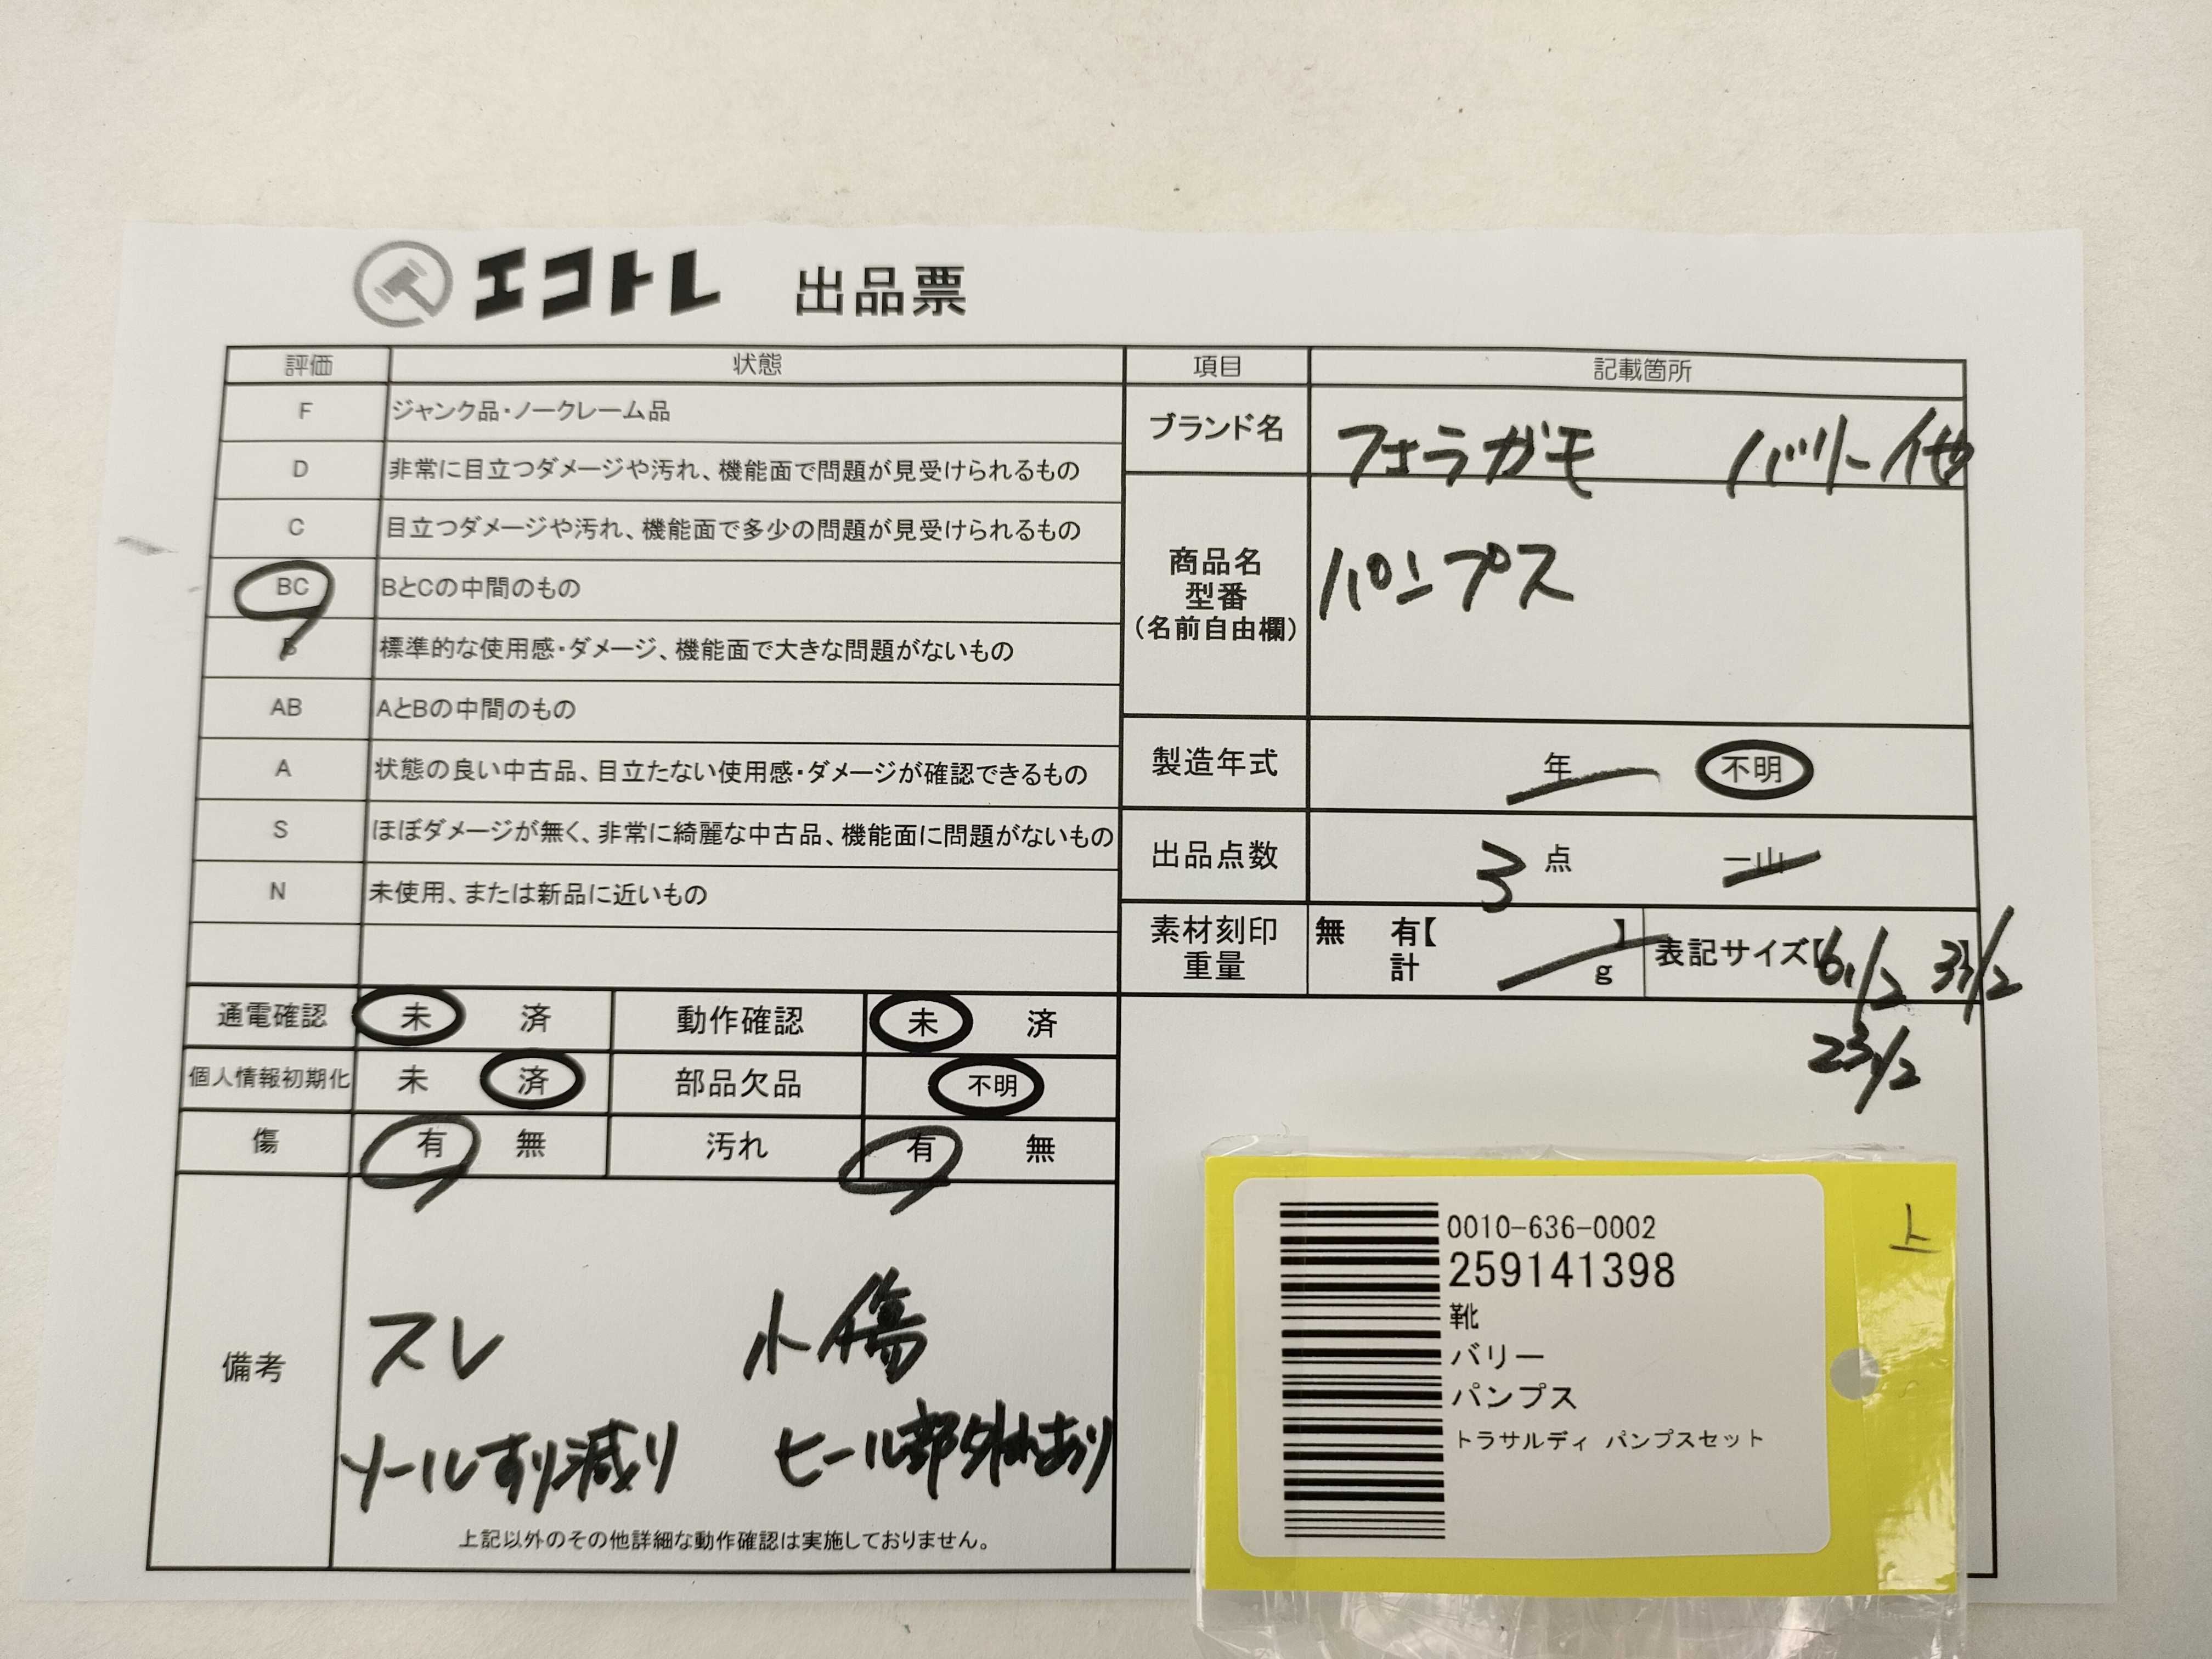 エコトレ 出品票
評価 状態
F ジャンク品・ノークレーム品
D 非常に目立つダメージや汚れ、機能面で問題が見受けられるもの
C 目立つダメージや汚れ、機能面で多少の問題が見受けられるもの
BC BとCの中間のもの
B 標準的な使用感・ダメージ、機能面で大きな問題がないもの
AB AとBの中間のもの
A 状態の良い中古品、目立たない使用感・ダメージが確認できるもの
S ほぼダメージが無く、非常に綺麗な中古品、機能面に問題がないもの
N 未使用、または新品に近いもの
項目 記載箇所
ブランド名 フェラガモ バリー他
商品名
型番
(名前自由欄)
パンプス
製造年式 年 不明
出品点数 3 点 一山
素材刻印 無 有【 】
重量 計 g
表記サイズ【6 1/2
23 1/2
通電確認 未 済 動作確認 未 済
個人情報初期化 未 済 部品欠品 不明
傷 有 無 汚れ 有 無
備考
スレ 小傷
ソールすり減り ヒール部外れあり
上記以外のその他詳細な動作確認は実施しておりません。
上
0010-636-0002
259141398
靴
バリー
パンプス
トラサルディ パンプスセット